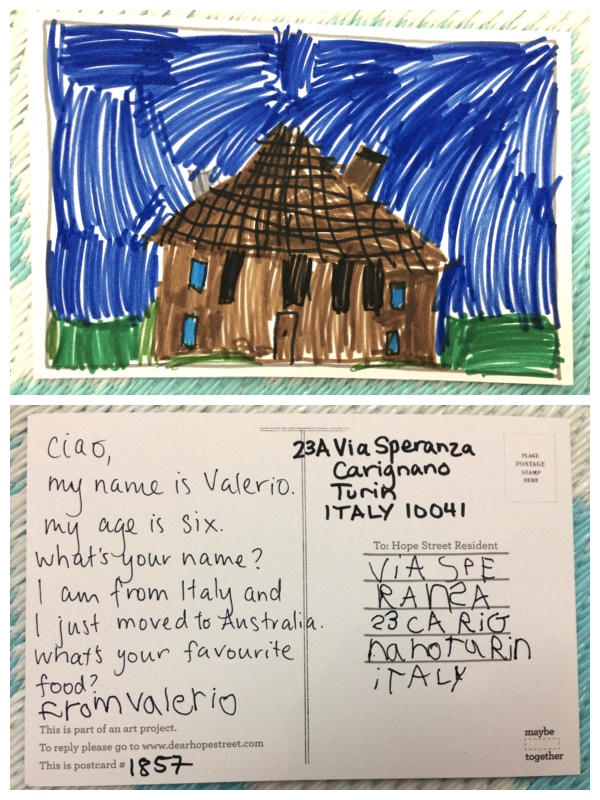 ciao,
my name is Valerio.
my age is six.
what's your name?
I am from Italy and
I just moved to Australia.
what's your favourite
food?
From Valerio
This is part of an art project.
To reply please go to www.dearhopestreet.com
This is postcard # 1857
23A Via Speranza
Carignano
Turin
ITALY 10041
PLACE
POSTAGE
STAMP
HERE
To: Hope Street Resident
ViA SPE
RANZA
23 CA RiG
nano TuRin
iTALY
maybe
together